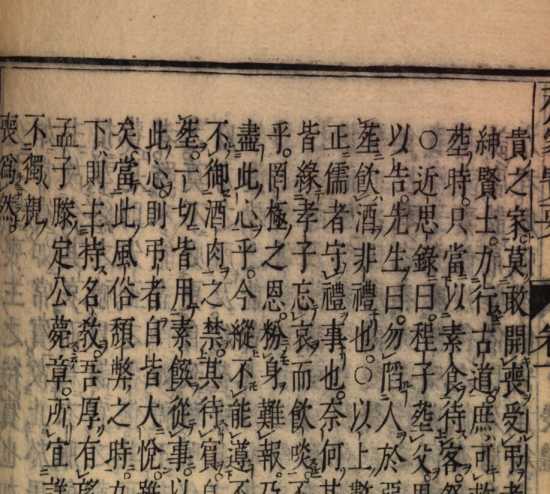 貴之家莫敢開喪受弔者
紳賢士力行古道庶可
塟時只當以素食待客
○近思錄曰程子塟父
以告先生曰勿陷人於惡
塟飲酒非禮也○以上數
正儒者守禮事也奈何其
皆緣孝子忘哀而飲啖
乎罔極之恩粉身難報乃
盡此心乎今縱不能遵
不御酒肉之禁其待賔
塟一切皆用素餕從事以
此心則弔者自皆大悅
矣當此風俗頹弊之時
下則主持名敎吾厚有
孟子滕定公薨章所宜
不獨親
喪爲然